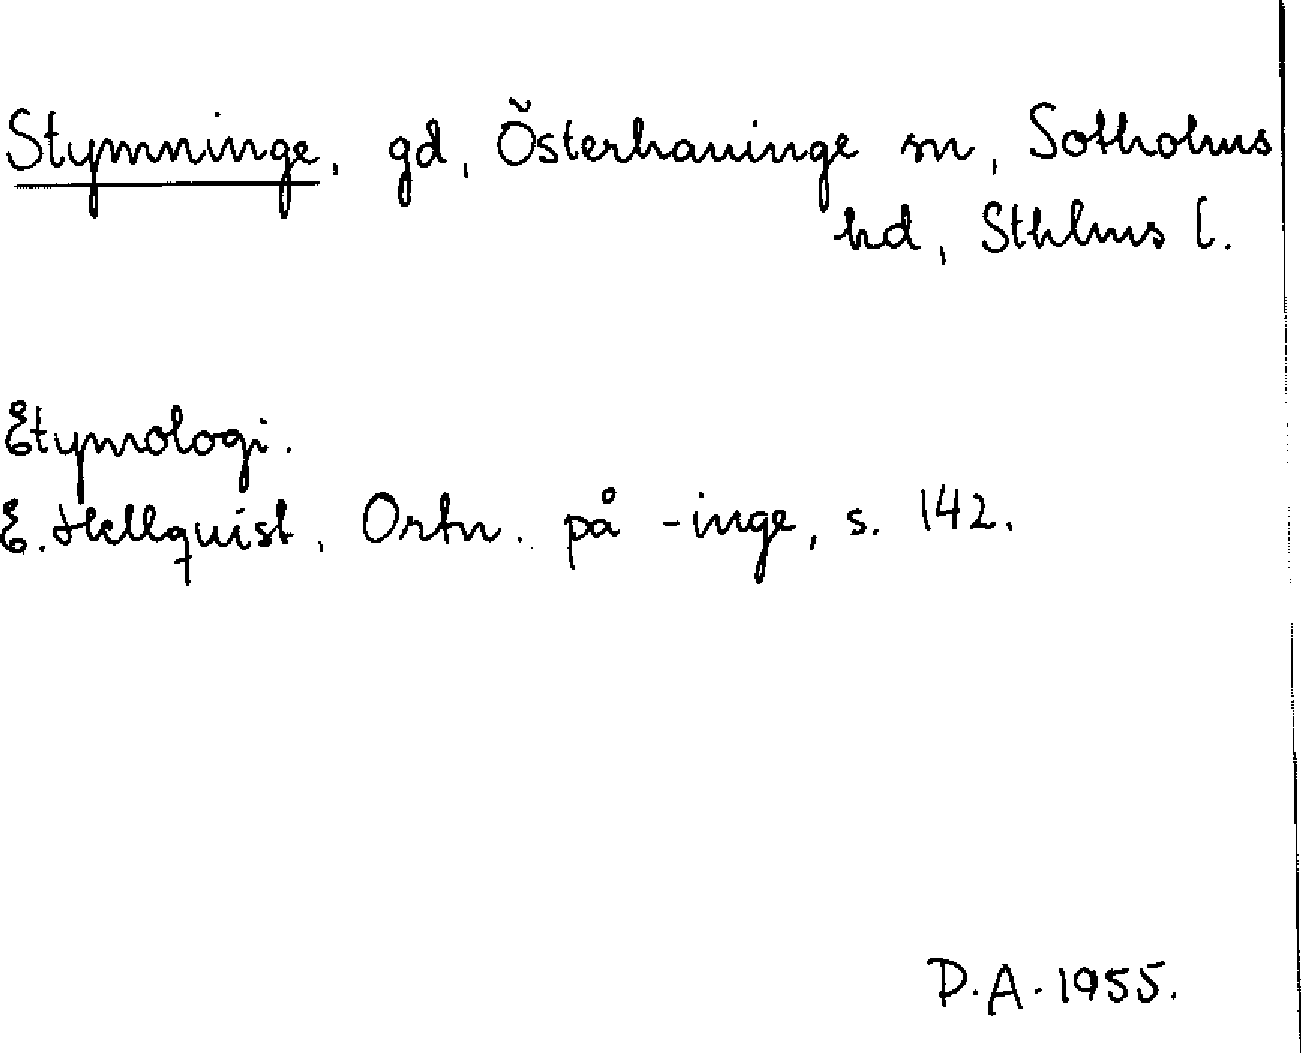 Stymninge, gd, Österhaninge sn, Sotholms
hd, Sthlms l.
Etymologi.
E. Hellquist, Ortn. på -inge, s. 142.
D.A. 1955.